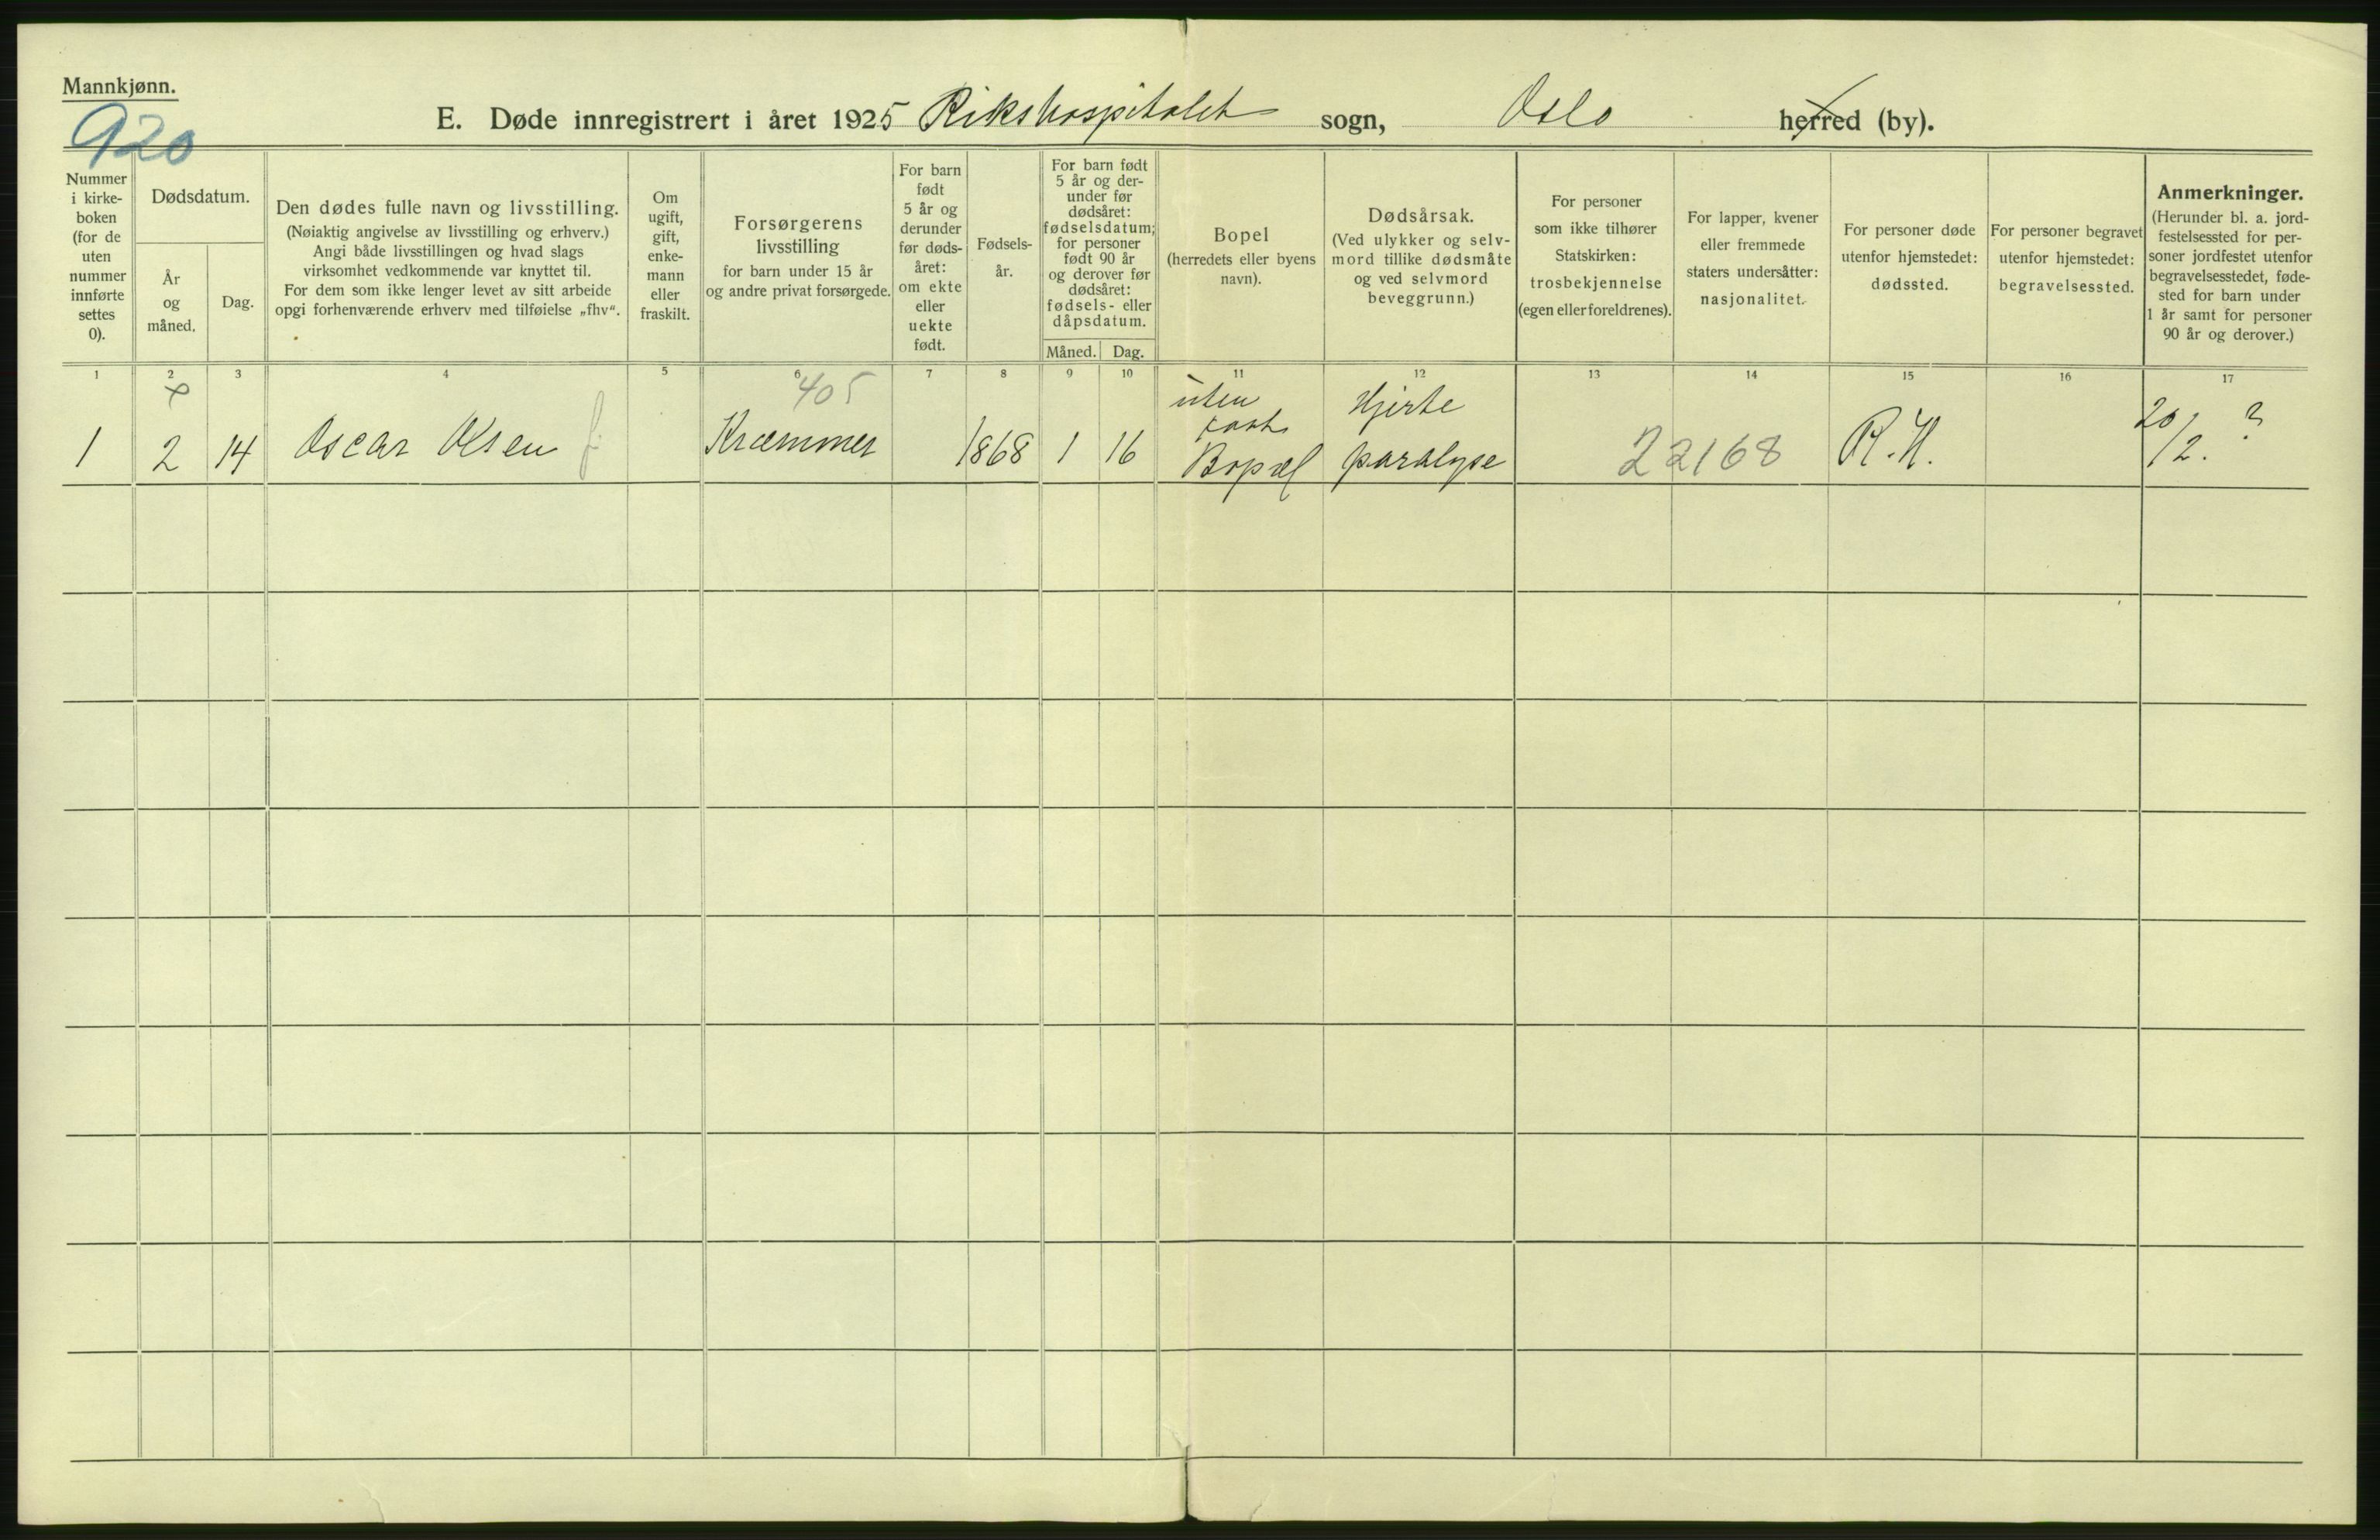 Mannkjønn.
920
E. Døde innregistrert i året 1925 Rikshospitalet sogn, Oslo herred (by).
Nummer
i kirke-
boken
(for de
uten
nummer
innførte
settes
0).
Dødsdatum.
År
og
måned.
Dag.
Den dødes fulle navn og livsstilling.
(Nøiaktig angivelse av livsstilling og erhverv.)
Angi både livsstillingen og hvad slags
virksomhet vedkommende var knyttet til.
For dem som ikke lenger levet av sitt arbeide
opgi forhenværende erhverv med tilføielse „fhv“.
Om
ugift,
gift,
enke-
mann
eller
fraskilt.
Forsørgerens
livsstilling
for barn under 15 år
og andre privat forsørgede.
For barn
født
5 år og
derunder
før døds-
året:
om ekte
eller
uekte
født.
Fødsels-
år.
For barn født
5 år og der-
under før
dødsåret:
fødselsdatum;
for personer
født 90 år
og derover før
dødsåret:
fødsels- eller
dåpsdatum.
Måned. Dag.
Bopel
(herredets eller byens
navn).
Dødsårsak.
(Ved ulykker og selv-
mord tillike dødsmåte
og ved selvmord
beveggrunn.)
For personer
som ikke tilhører
Statskirken:
trosbekjennelse
(egen eller foreldrenes).
For lapper, kvener
eller fremmede
staters undersåtter:
nasjonalitet.
For personer døde
utenfor hjemstedet:
dødssted.
For personer begravet
utenfor hjemstedet:
begravelsessted.
Anmerkninger.
(Herunder bl. a. jord-
festelsessted for per-
soner jordfestet utenfor
begravelsesstedet, føde-
sted for barn under
1 år samt for personer
90 år og derover.)
1 2 3 4 5 6 7 8 9 10 11 12 13 14 15 16 17
405
1 2 14 Oscar Olsen f. Kræmmer 1868 1 16
uten
fast
Bopæl
Hjerte
paralyse
22168 R.H. 20/2. ?